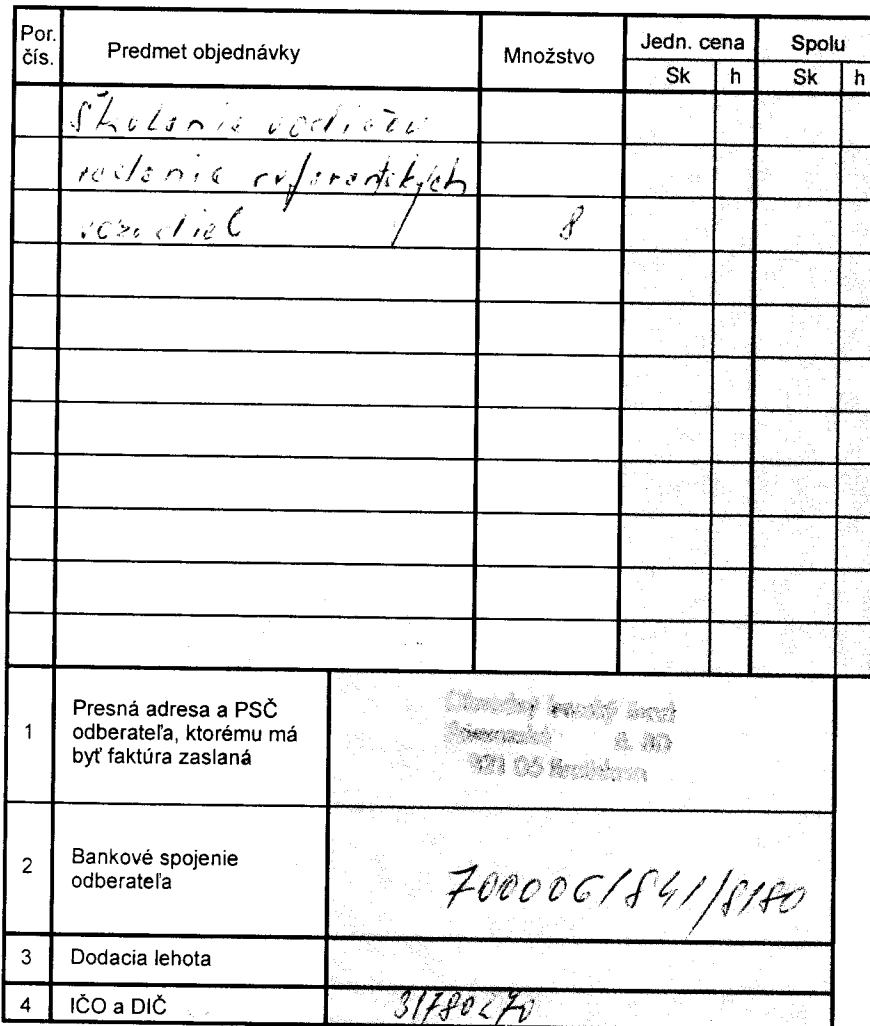 Por. čís. Predmet objednávky Množstvo Jedn. cena Spolu
Sk h Sk h
Školenie vodičov
vedenie referentských
vozidiel 8
1 Presná adresa a PSČ
odberateľa, ktorému má
byť faktúra zaslaná
Obvodný banský úrad
821 05 Bratislava
2 Bankové spojenie
odberateľa
700006/841/8180
3 Dodacia lehota
4 IČO a DIČ 31780270